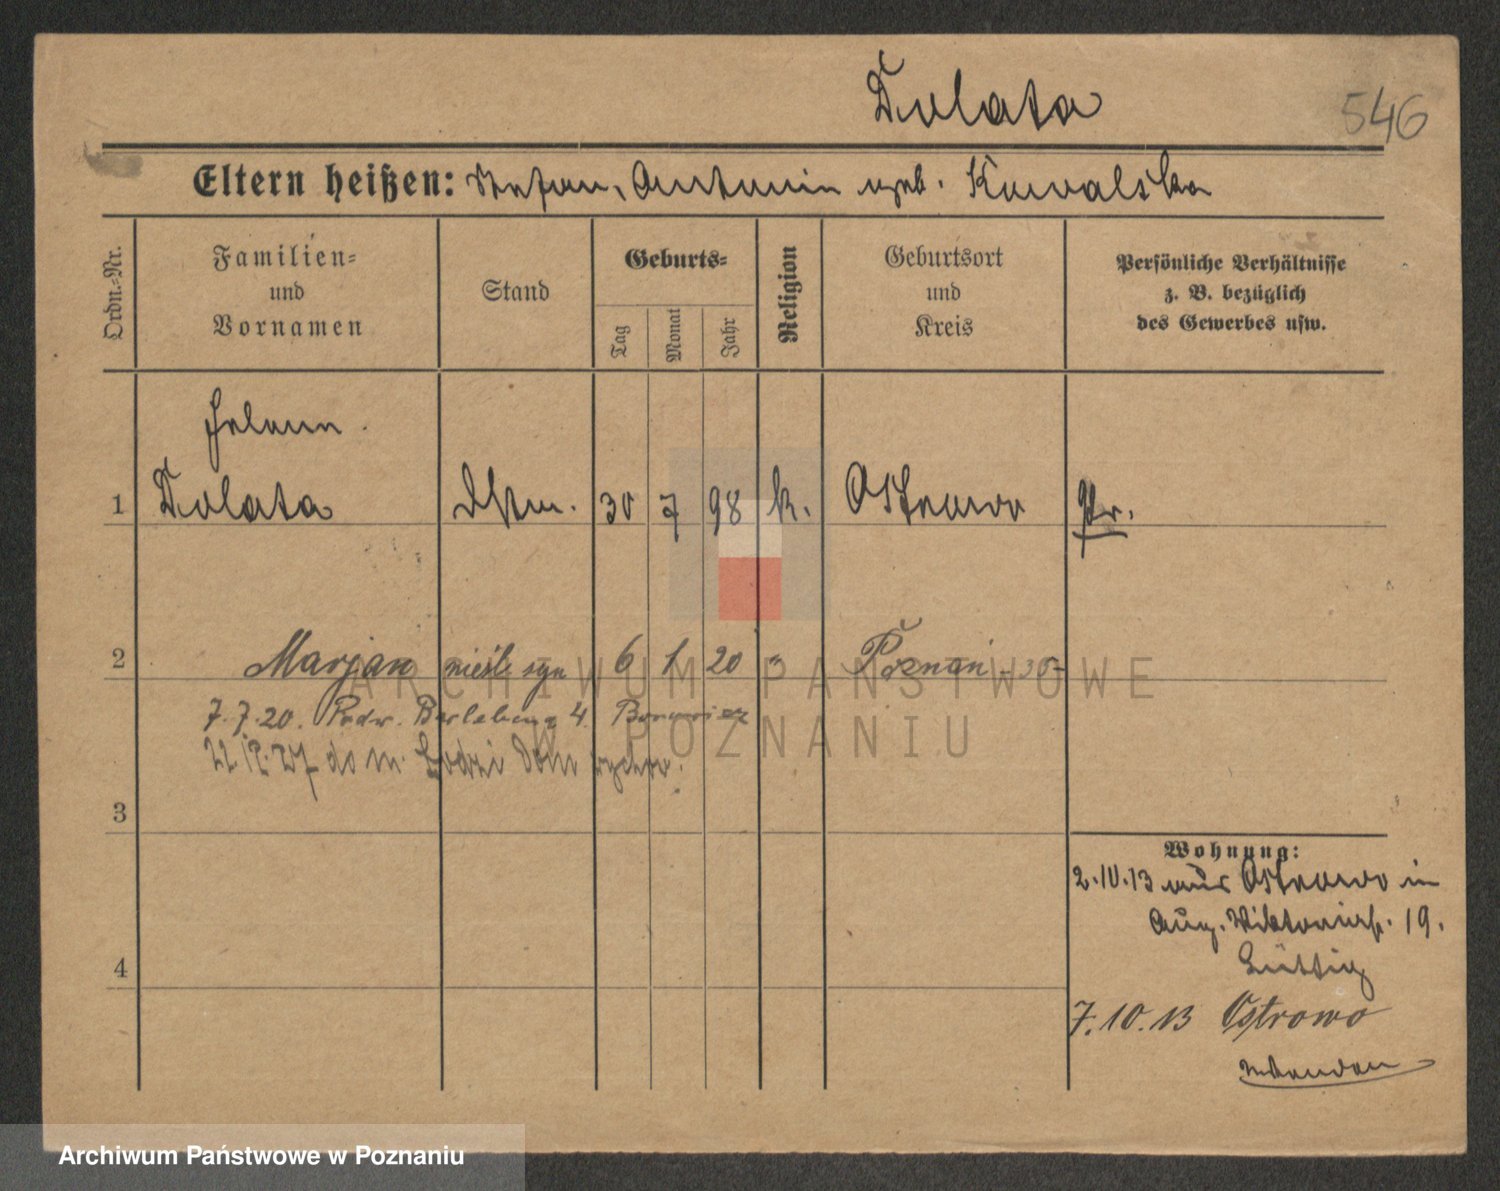 Dolata
546
Eltern heißen: Stefan, Antonie geb. Kowalska
Ordn.-Nr.
Familien-
und
Vornamen
Stand
Geburts-
Tag
Monat
Jahr
Religion
Geburtsort
und
Kreis
Persönliche Verhältnisse
z. B. bezüglich
des Gewerbes usw.
Helene
1 Dolata Dstm. 30 7 98 k. Ostrowo Pr.
2 Marjan nieśl. syn 6 1 20 " Poznań
7.7.20.
do m. Łodzi
3
Wohnung:
2.10.13 aus Ostrowo in
Aug. Viktoriastr. 19.
Lüttig
4
7.10.13 Ostrowo
ARCHIWUM PAŃSTWOWE
W POZNANIU
Archiwum Państwowe w Poznaniu